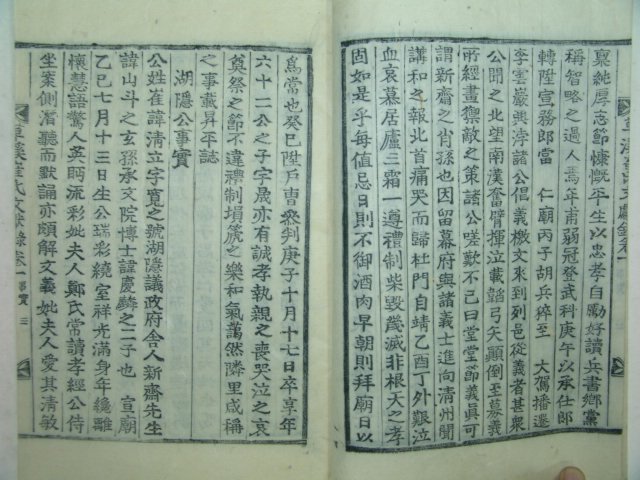 稟純厚志節慷慨平生以忠孝自勵好讀兵書鄉黨
稱智略之過人焉年甫弱冠登武科庚午以承仕郎
轉陞宣務郎當　仁廟丙子胡兵猝至　大駕播遷
李雲巖興浡諸公倡義檄文來到列邑從義者甚衆
公聞之北望南漢奮臂揮泣載韜弓矢顚倒至募義
所經畫禦敵之策諸公嗟歎不已曰堂堂節義眞可
謂新齋之肖孫也因留幕府與諸義士進向淸州聞
講和之報北首痛哭而歸杜門自靖乙酉丁外艱泣
血哀慕居廬三霜一遵禮制柴毁幾滅非根天之孝
固如是乎每値忌日則不御酒肉早朝則拜廟日以
爲當也癸巳陞戶曹叅判庚子十月十七日卒享年
六十二公之子字晟亦有誠孝執親之喪哭泣之哀
奠祭之節不違禮制塤篪之樂和氣藹然隣里咸稱
之事載昇平誌
湖隱公事實
公姓崔諱淸立字寬之號湖隱議政府舍人新齋先生
諱山斗之玄孫承文院博士諱慶麟之二子也　宣廟
乙巳七月十三日生公瑞彩繞室祥光滿身年纔離
懷慧語驚人英眄流彩妣夫人鄭氏常讀孝經公侍
坐案側潛聽而默誦亦頗解文義妣夫人愛其淸敏
草溪崔氏文獻錄卷一　事實　三